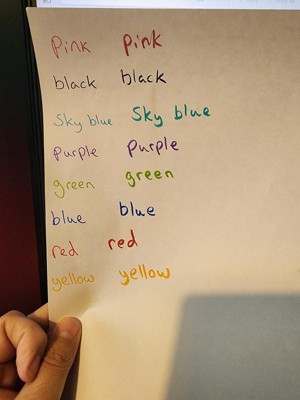 Pink pink
black black
Sky blue Sky blue
Purple Purple
green green
blue blue
red red
yellow yellow